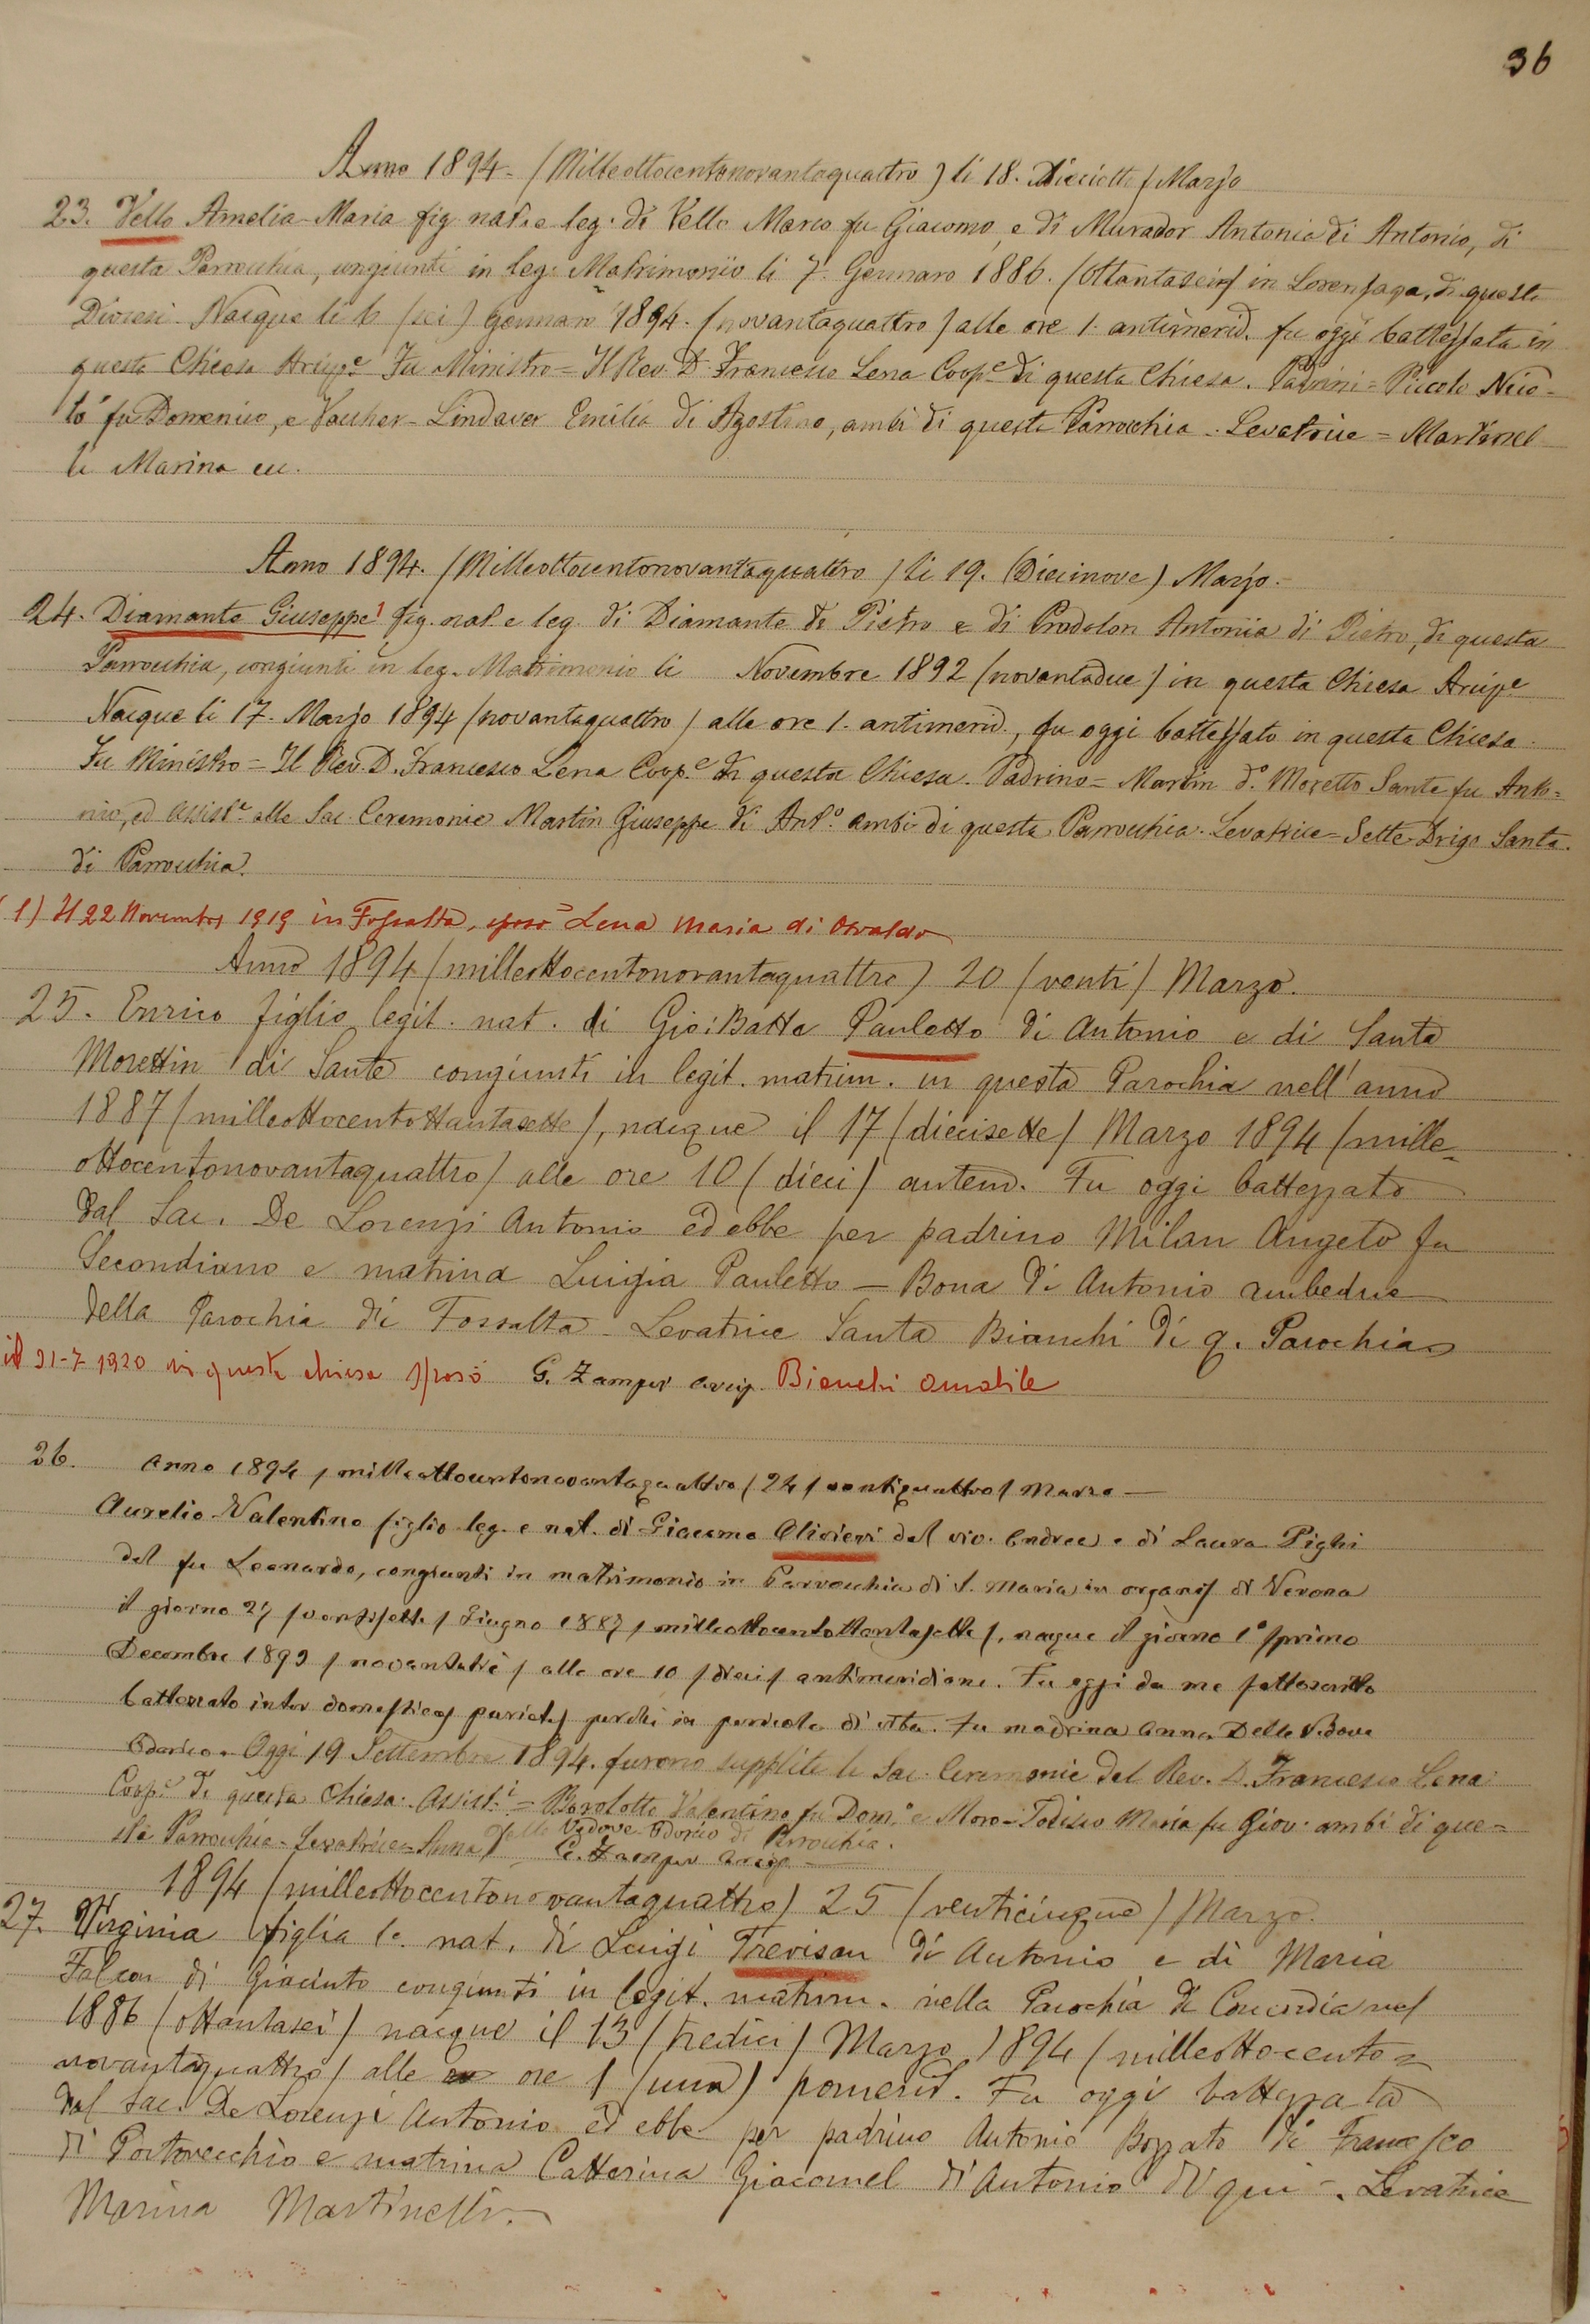 36
Anno 1894 - (Milleottocentonovantaquattro) li 18. Dieciotto / Marzo
23. Vello Amelia-Maria fig. nat. e leg. di Vello Marco fu Giacomo, e di Murador Antonia di Antonio, di
questa Parrocchia, congiunti in leg. Matrimonio li 7. Gennaro 1886. (Ottantasei) in Lorenzaga, di questa
Diocesi. Nacque li 6 (sei) Gennaro 1894. (novantaquattro) alle ore 1. antimerid. fu oggi battezzata in
questa Chiesa Arcip.e Fu Ministro = Il Rev. D. Francesco Lena Coop.e di questa Chiesa. Padrini = Piccolo Nico-
lò fu Domenico, e Vaucher-Lindaver Emilia di Agostino, ambi di questa Parrocchia. Levatrice = Martinel-
li Marina
Anno 1894. (Milleottocentonovantaquattro) li 19. (Diecinove) Marzo.
24. Diamante Giuseppe 1 fig. nat. e leg. di Diamante di Pietro e di Prodolon Antonia di Pietro, di questa
Parrocchia, congiunti in leg. Matrimonio li Novembre 1892 (novantadue) in questa Chiesa Arcip.e
Nacque li 17. Marzo 1894 (novantaquattro) alle ore 1. antimerid., fu oggi battezzato in questa Chiesa.
Fu Ministro = Il Rev. D. Francesco Lena Coop.e di questa Chiesa. Padrino = Martin d.o Moretto Sante fu Anto=
nio, ed Assist.e alle Sac. Ceremonie Martin Giuseppe di Ant.o ambi di questa Parrocchia. Levatrice = Sette-Drigo Santa
di Parrocchia.
(1) Il 22 Novembre 1919 in Fossalta, sposò Lena Maria di Osvaldo
Anno 1894 (milleottocentonovantaquattro) 20 (venti) Marzo.
25. Enrico figlio legit. nat. di Gio: Batta Pauletto di Antonio e di Santa
Morettin di Sante congiunti in legit. matrim. in questa Parochia nell'anno
1887 (milleottocentottantasette), nacque il 17 (diecisette) Marzo 1894 (mille-
ottocentonovantaquattro) alle ore 10 (dieci) antem. Fu oggi battezzato
dal Sac. De Lorenzi Antonio ed ebbe per padrino Milan Angelo fu
Secondiano e matrina Luigia Pauletto - Bona di Antonio ambedue
della Parochia di Fossalta - Levatrice Santa Bianchi di q. Parochia
il 21-7 1920 in questa chiesa sposò G. Zamper Arcip. Bianchi Amabile
26. Anno 1894 (milleottocentonovantaquattro) 24 (ventiquattro) Marzo -
Aurelio-Valentino figlio leg. e nat. di Giacomo Olivieri del viv. Andrea e di Laura Pighi
del fu Leonardo, congiunti in matrimonio in Parrocchia di S. Maria in organis di Verona
il giorno 27 (ventisette) Giugno 1887 (milleottocentottantasette), nacque il giorno 1° (primo
Decembre 1893 (novantatrè) alle ore 10 (dieci) antimeridiane. Fu oggi da me sottoscritto
battezzato inter domesticas parietes perchè in pericolo di vita. Fu madrina Anna Della Vedova
Odorico. Oggi 19 Settembre 1894. furono supplite le Sac. Ceremonie dal Rev. D. Francesco Lena
Coop.e di questa Chiesa. Assist.i = Borolotto Valentino fu Dom.o e Moro-Todisco Maria fu Giov. ambi di que=
sta Parrocchia - Levatrice = Anna Della Vedova Odorico di Parrocchia.
G. Zamper Arcip.
1894 (milleottocentonovantaquattro) 25 (venticinque) Marzo.
27. Virginia figlia le. nat. di Luigi Trevisan di Antonio e di Maria
Falcon di Giacinto congiunti in legit. matrim. nella Parochia di Concordia nel
1886 (ottantasei) nacque il 13 (tredici) Marzo 1894 (milleottocento=
novantaquattro) alle ore 1 (una) pomerid. Fu oggi battezzata
dal Sac. De Lorenzi Antonio ed ebbe per padrino Antonio Bozzato di Francesco
di Portovecchio e matrina Catterina Giacomel di Antonio di qui -. Levatrice
Marina Martinelli.